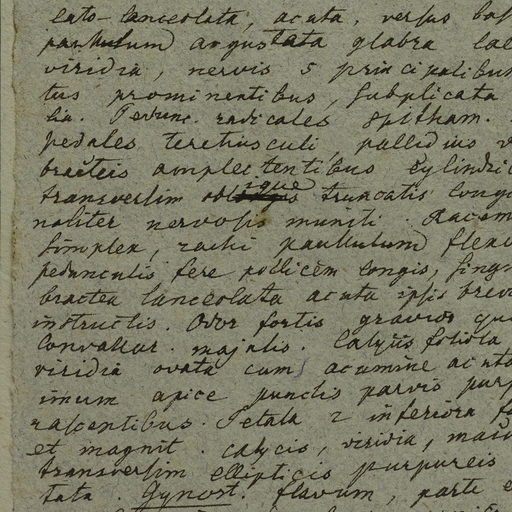 eato-lanceolata, acuta, versus bas
paullulum angustata glabra lae
viridia, nervis 5 principalibus
tus prominentibus, subplicata
lia. Pedunc. radicales spitham.
pedales teretiusculi, pallidius v
bracteis amplectentibus cylindric
transversim oblique truncatis long
naliter nervosis muniti. Racem
simplex, rachi paullulum flexu
pedunculis fere pollicem longis, sing
bractea lanceolata acuta ipsis brevi
instructis. Odor fortis gravior qu
Convallar. majalis. Calycis foliola
viridia ovata cum acumine acuto
imum apice punctis parvis purp
rascentibus. Petala 2 inferiora f
et magnit. calycis, viridia, macu
transversim ellipticis purpureis
tata. Gynost. flavum, parte